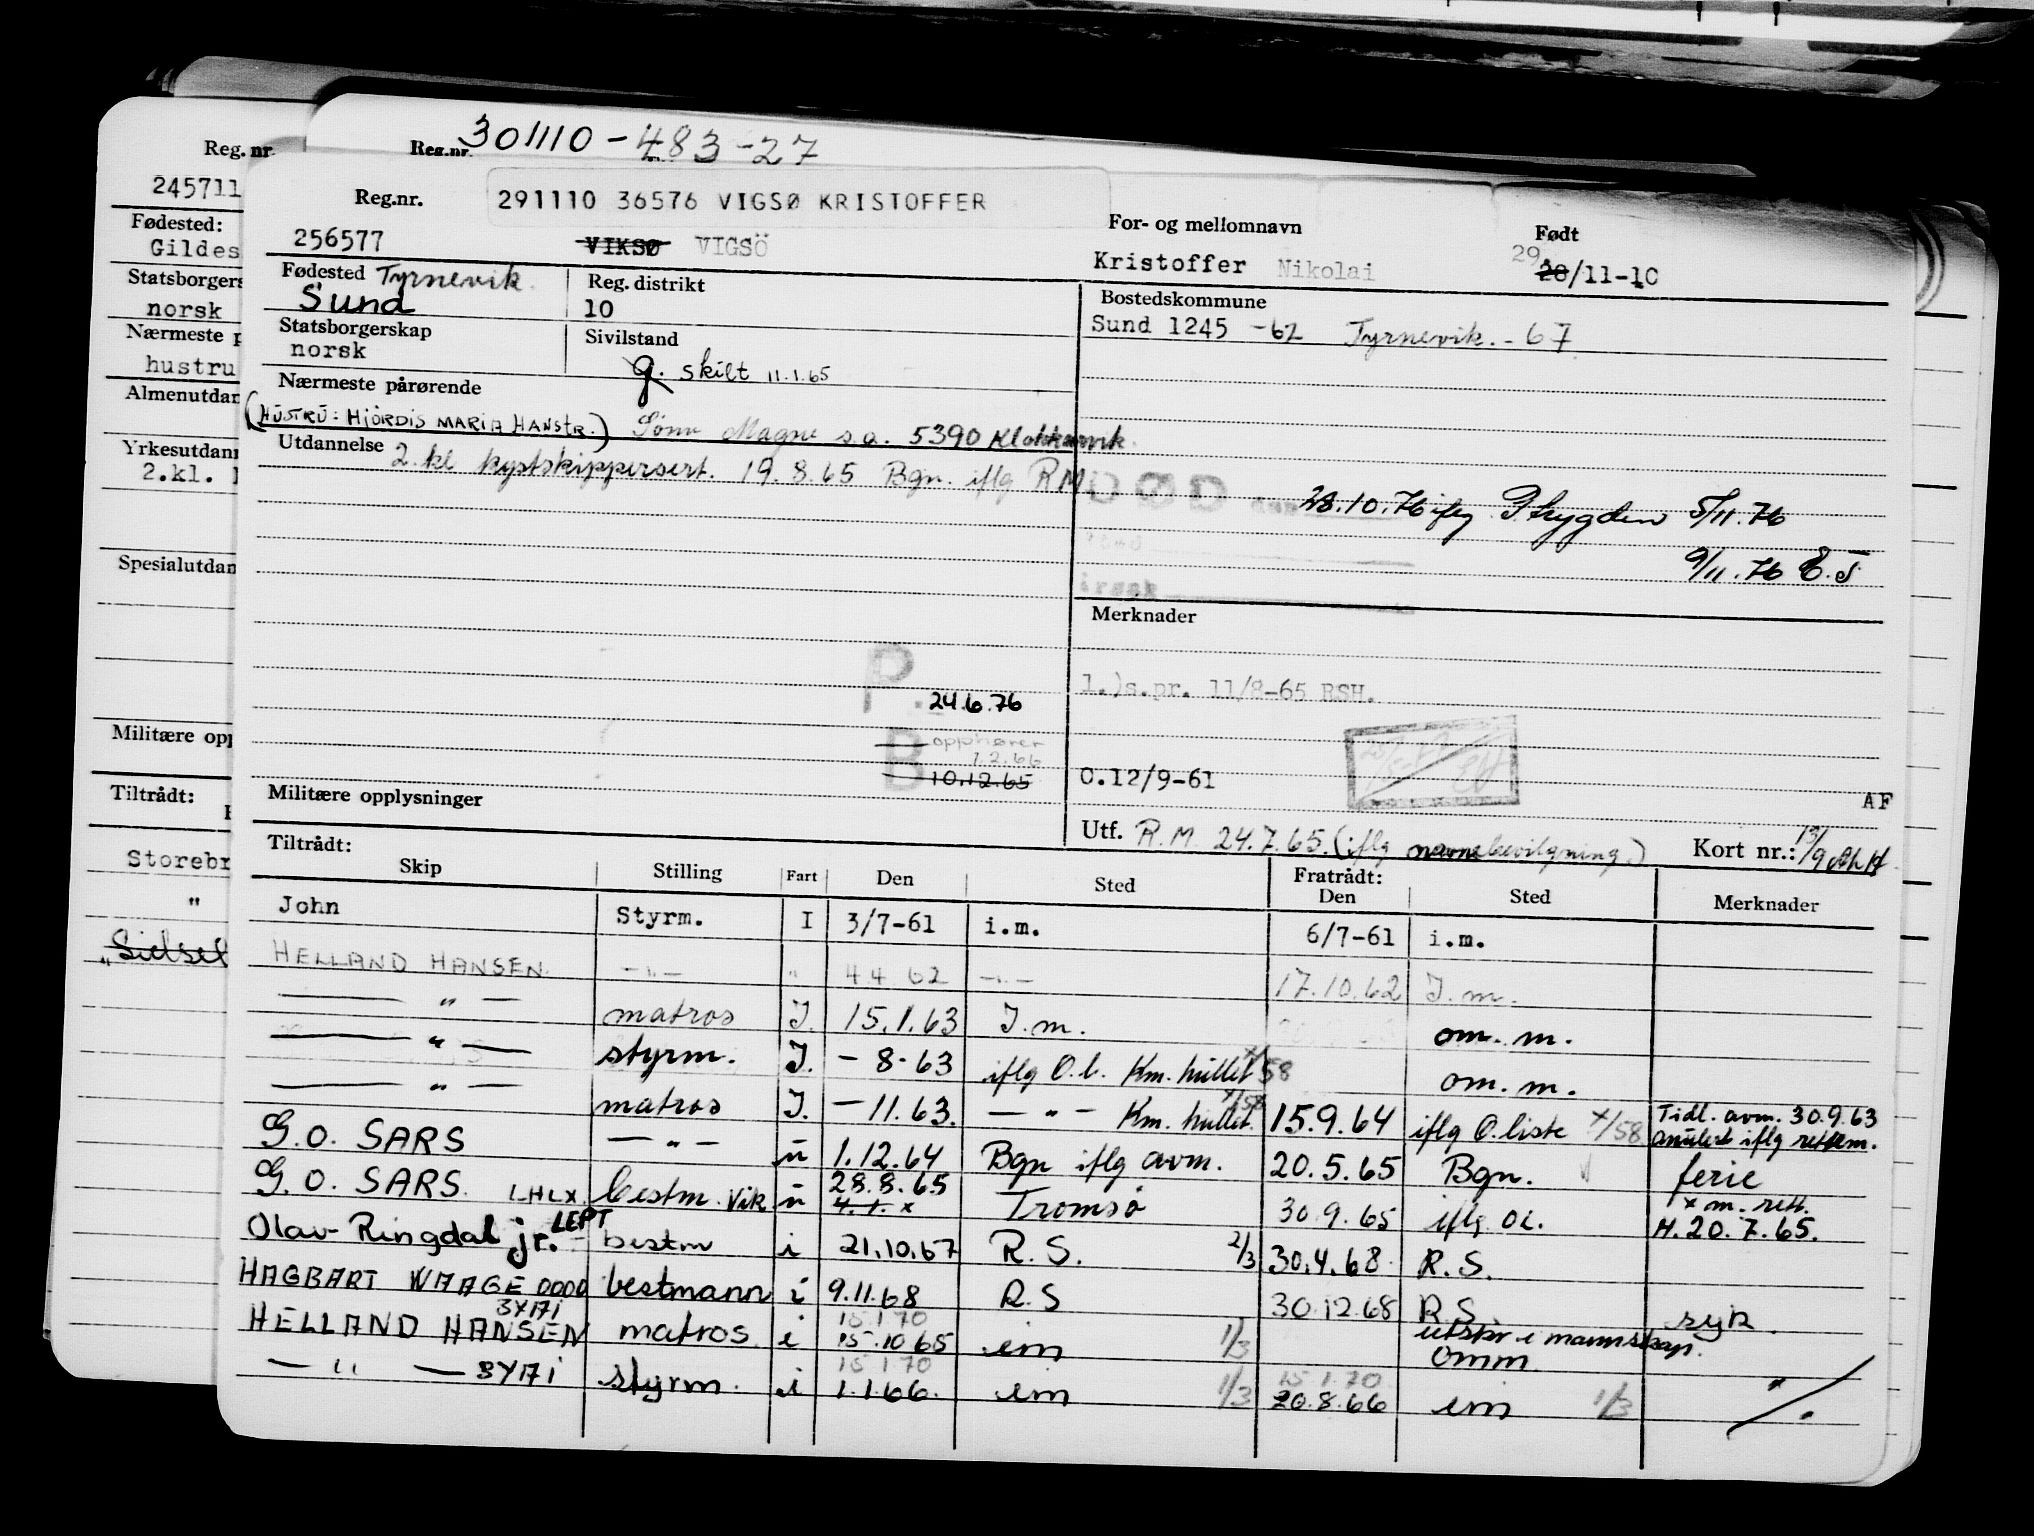 301110-483-27
Reg.nr.
Reg.nr.
Reg.nr. 291110 36576 VIGSØ KRISTOFFER
245711
256577 VIKSØ VIGSÖ
For- og mellomnavn
Kristoffer Nikolai
Født
29. 28/11-10
Fødested:
Gildes
Statsborgers
norsk
Nærmeste p
hustru
Almenutdan
Yrkesutdann
2.kl.
Spesialutdan
Militære opp
Tiltrådt:
Storebr
"
Fødested Tyrnevik.
Sund
Reg. distrikt
10
Bostedskommune
Sund 1245 -62 Tyrnevik. - 67
Statsborgerskap
norsk
Sivilstand
g. skilt 11.1.65
Nærmeste pårørende
(HUSTRU: HJÖRDIS MARIA HANSTR.) Sønn Magne s.a. 5390 Klokkarvik.
Utdannelse 2. kl kystskippersert. 19.8.65 Bgn. iflg RM
DØD den 28.10.76 iflg Ptrygden 5/11.76
årsak
9/11.76 E.S
Merknader
1.)s.pr. 11/8-65 RSH.
P. 24.6.76
opphører
1.2.66
B 10.12.65
O.12/9-61
AF
Militære opplysninger
Utf. R.M. 24.7.65. (iflg navnebevilgning.)
Kort nr.: 13/9
Tiltrådt:
Skip Stilling Fart Den Sted Fratrådt: Den Sted Merknader
John Styrm. I 3/7-61 i.m. 6/7-61 i.m.
HELLAND HANSEN. -"- " 4.4 62 -"- 17.10.62 I.m.
— " — matros I. 15.1.63 I.m. om. m.
— " — styrm. I. - 8-63 iflg O.l. Km. hullet x/58 om. m.
— " — matros I. - 11.63. — " — Km. hullet. x/58 15.9.64 iflg O.liste x/58 Tidl. avm. 30.9.63 anulert iflg rettem.
G.O. SARS — " — u 1.12.64 Bgn iflg avm. 20.5.65 Bgn. ferie
G.O. SARS. LHLX. bestm. Vik u 28.8.65 4.1. x Tromsø 30.9.65 iflg OL. x m. rett. H. 20.7.65.
Olav Ringdal jr. LEPT bestm i 21.10.67 R.S. 2/3 30.4.68 R.S.
HAGBART WAAGE bestmann i 9.11.68 R.S 30.12.68 R.S. syk.
HELLAND HANSEN 3YAI matros i 15.1.70 15.10.65 im 1/3 utstr i mannskap. omm
— " — 3YAI styrm. i 15.1.70 1.1.66. im 1/3 15.1.70 20.8.66 im 1/3 "